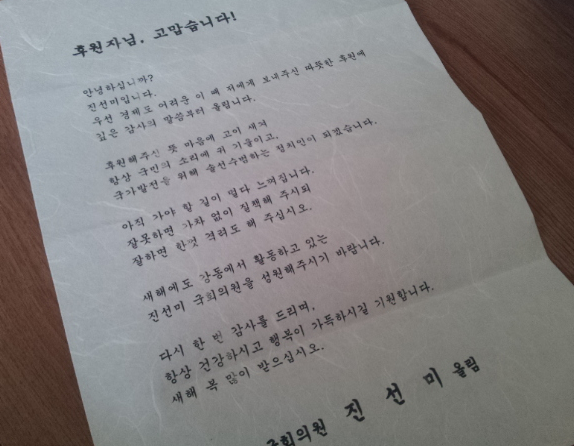 후원자님, 고맙습니다!
안녕하십니까?
진선미입니다.
우선 경제로 어려운 이 때 저에게 보내주신 따뜻한 후원에
깊은 감사의 말씀부터 올립니다.
후원해주신 뜻 마음에 고이 새겨
항상 국민의 소리에 귀 기울이고,
국가발전을 위해 솔선수범하는 정치인이 되겠습니다.
아직 가야 할 길이 멀다 느껴집니다.
잘못하면 가차 없이 질책해 주시되
잘하면 한껏 격려도 해 주십시오.
새해에도 강동에서 활동하고 있는
진선미 국회의원을 성원해주시기 바랍니다.
다시 한 번 감사를 드리며,
항상 건강하시고 행복이 가득하시길 기원합니다.
새해 복 많이 받으십시오.
국회의원 진 선 미 올림